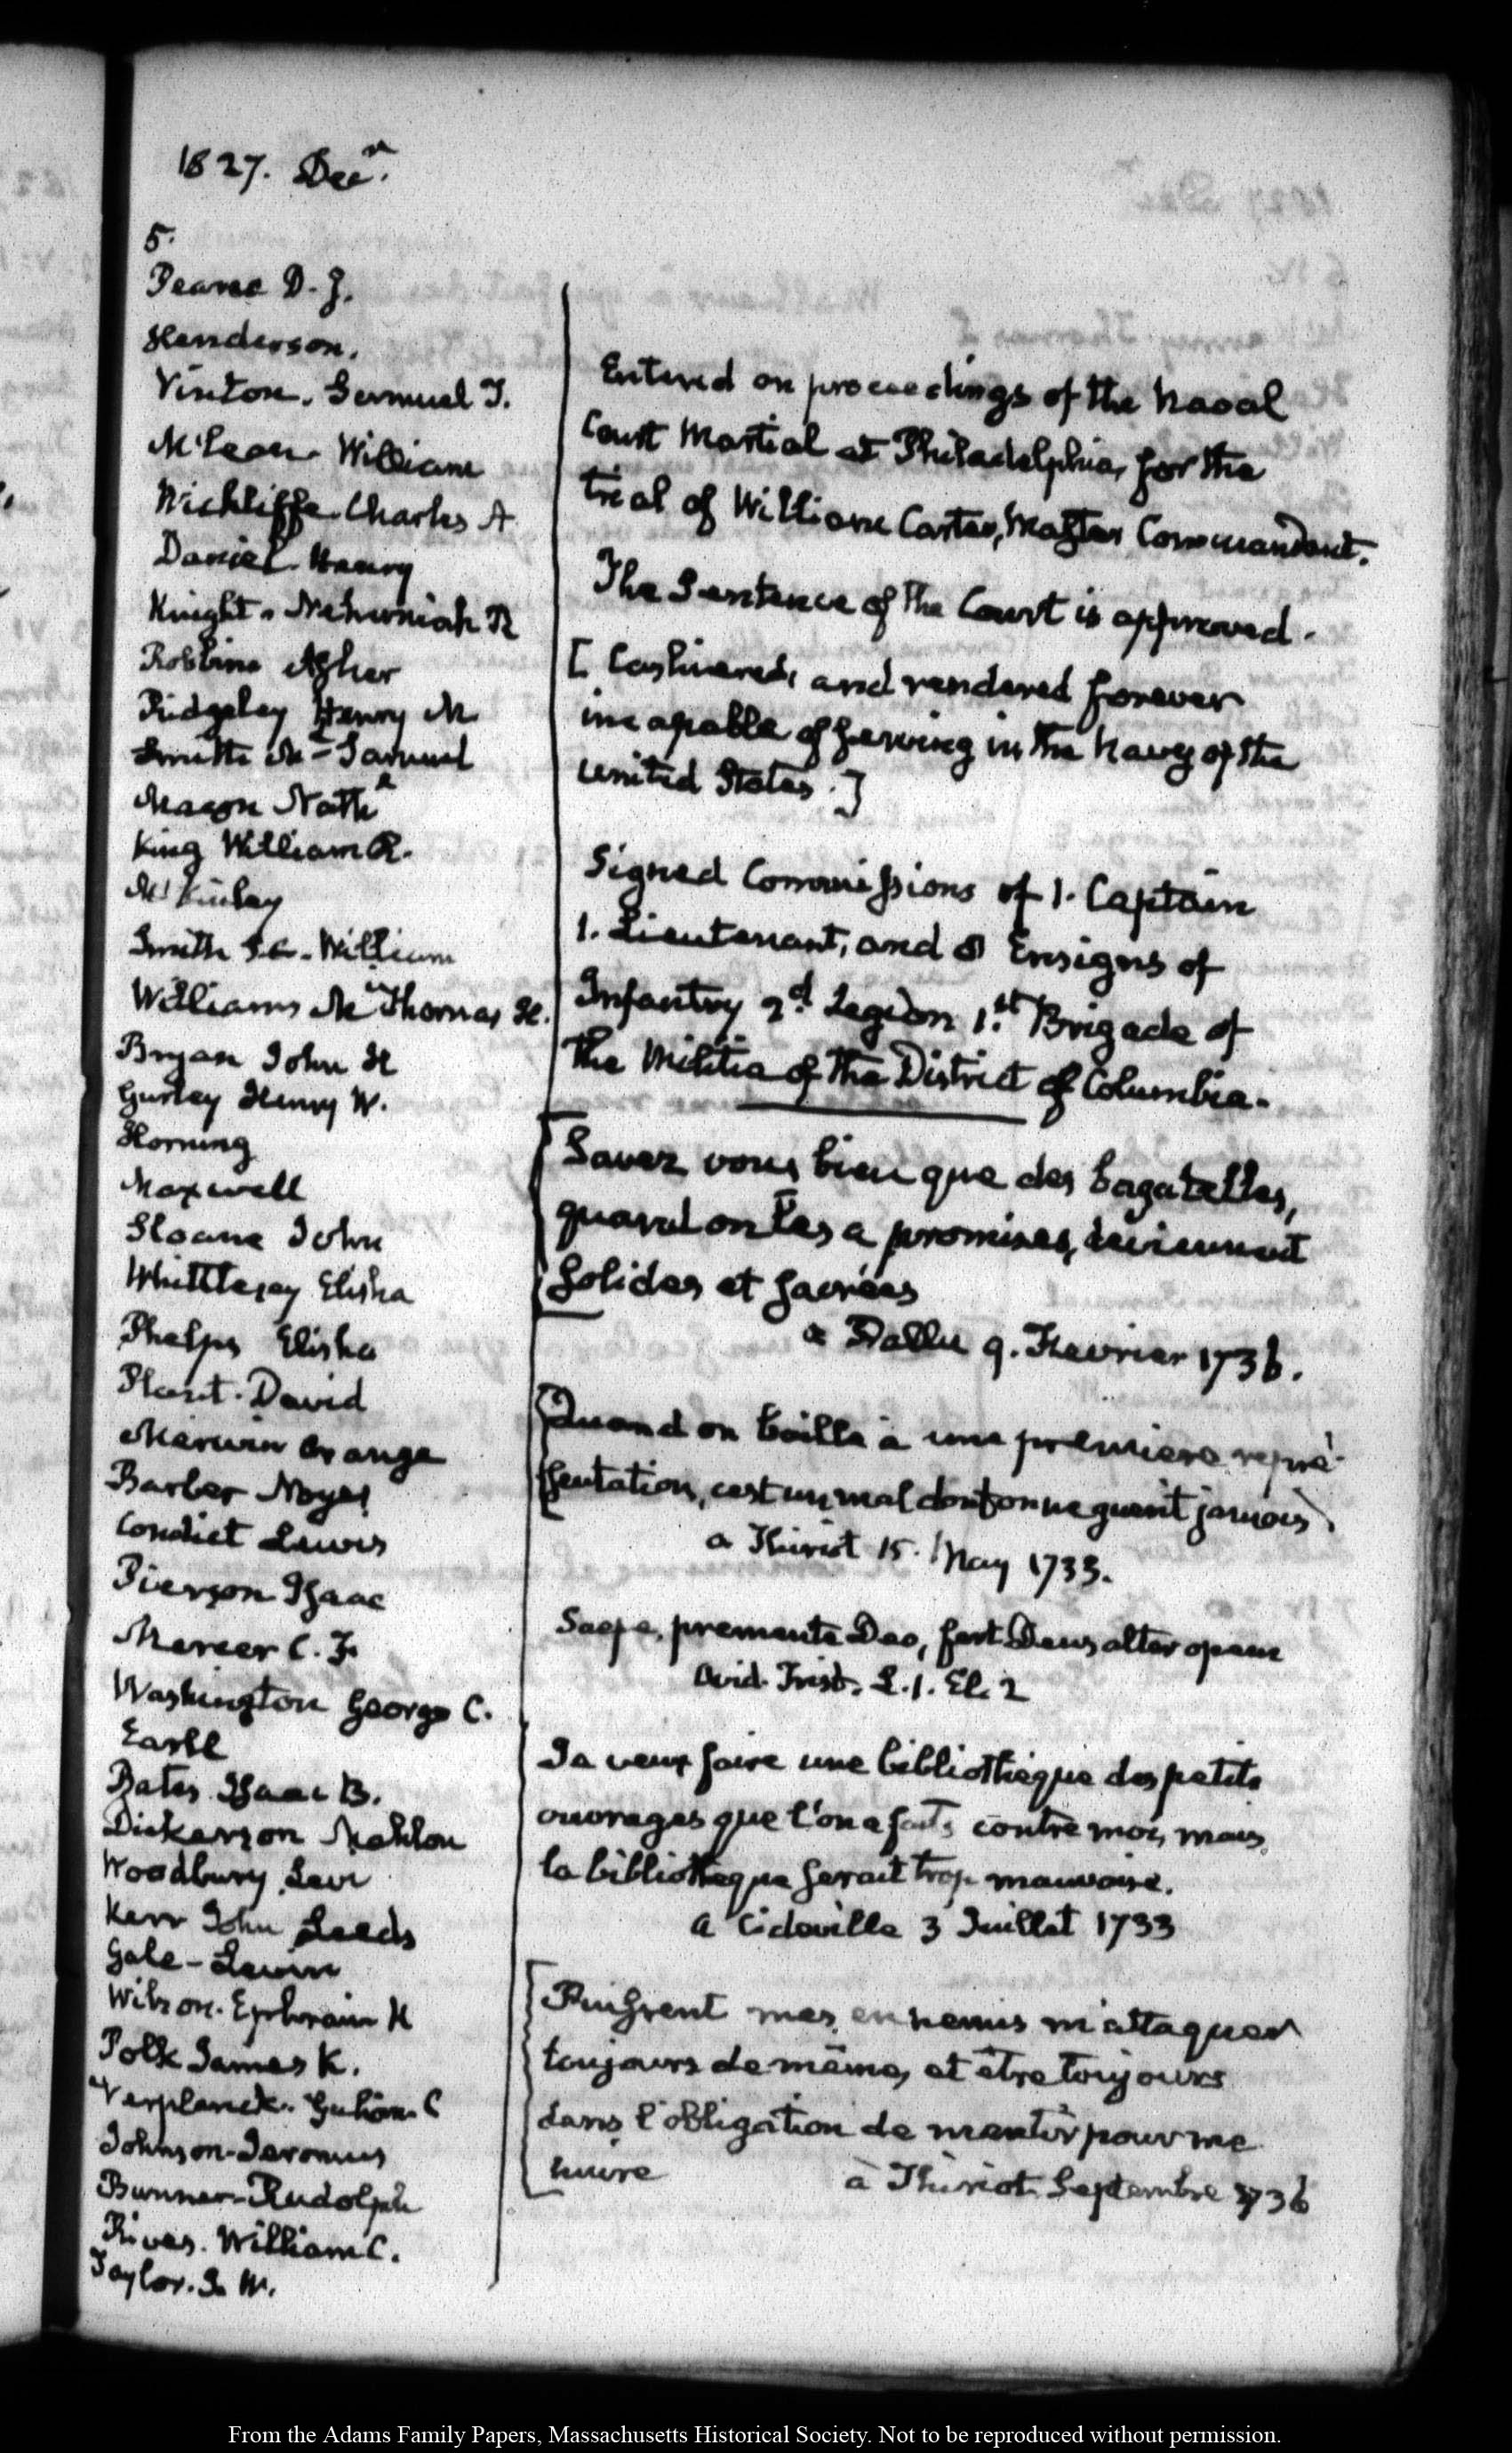 1827. Decr.
5.
Pearce D. J.
Henderson.
Vinton. Samuel F.
McLean William
Wickliffe Charles A
Daniel. Henry
Knight. Nehemiah R
Robbins Asher
Ridgeley Henry M.
Smith Md Samuel
Macon Nathl
King William R.
McKinley
Smith S.C. William
Williams Mi Thomas H.
Bryan John H
Gurley Henry W.
Horning
Maxwell
Sloane John
Whittlesey Elisha
Phelps Elisha
Plant. David
Merwin Orange
Barber Noyes
Condict Lewis
Pierson Isaac
Mercer C. F.
Washington George C.
Earll
Bates Isaac B.
Dickerson Mahlon
Woodbury Levi
Kerr John Leeds
Gale - Levin
Wilson. Ephraim K
Polk James K.
Verplanck. Gulian C
Johnson - Jeromus
Bunner - Rudolph
Rives. William C.
Taylor. J. W.
Entered on proceedings of the Naval
Court Martial at Philadelphia, for the
trial of William Carter, Master Commandant.
The Sentence of the Court is approved.
[Cashiered, and rendered forever
incapable of serving in the Navy of the
United States.]
Signed Commissions of 1. Captain
1. Lieutenant, and Ensigns of
Infantry 2d. Legion 1st. Brigade of
the Militia of the District of Columbia.
Savez vous bien que des bagatelles,
quand on les a promises, deviennent
solides et sacrées
a 9. Fevrier 1736.
Quand on baille à une premiere repré-
sentation, c'est un mal dont on ne guerit jamais.
a Thiriot 15. May 1733.
Saepe, premente Deo, fert Deus alter opem
Ovid. Trist. L.1. El. 2
Je veux faire une bibliothèque des petits
ouvrages que l'on a faits contre moi, mais
la bibliotheque serait trop mauvaise.
a Cideville 3 Juillet 1733
Puissent mes ennemis m'attaquer
toujours de même, et être toujours
dans l'obligation de mentir pour me
nuire à Thiriot Septembre 1736
From the Adams Family Papers, Massachusetts Historical Society. Not to be reproduced without permission.